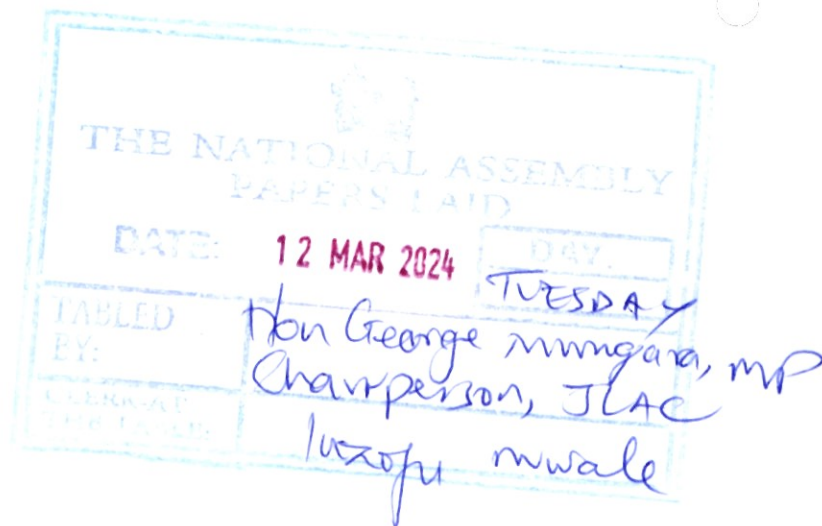 THE NATIONAL ASSEMBLY
PAPERS LAID
DATE: 12 MAR 2024 DAY.
TUESDAY
TABLED BY: Hon George
MP
Chairperson, JLAC
CLERK-AT THE TABLE: mwale